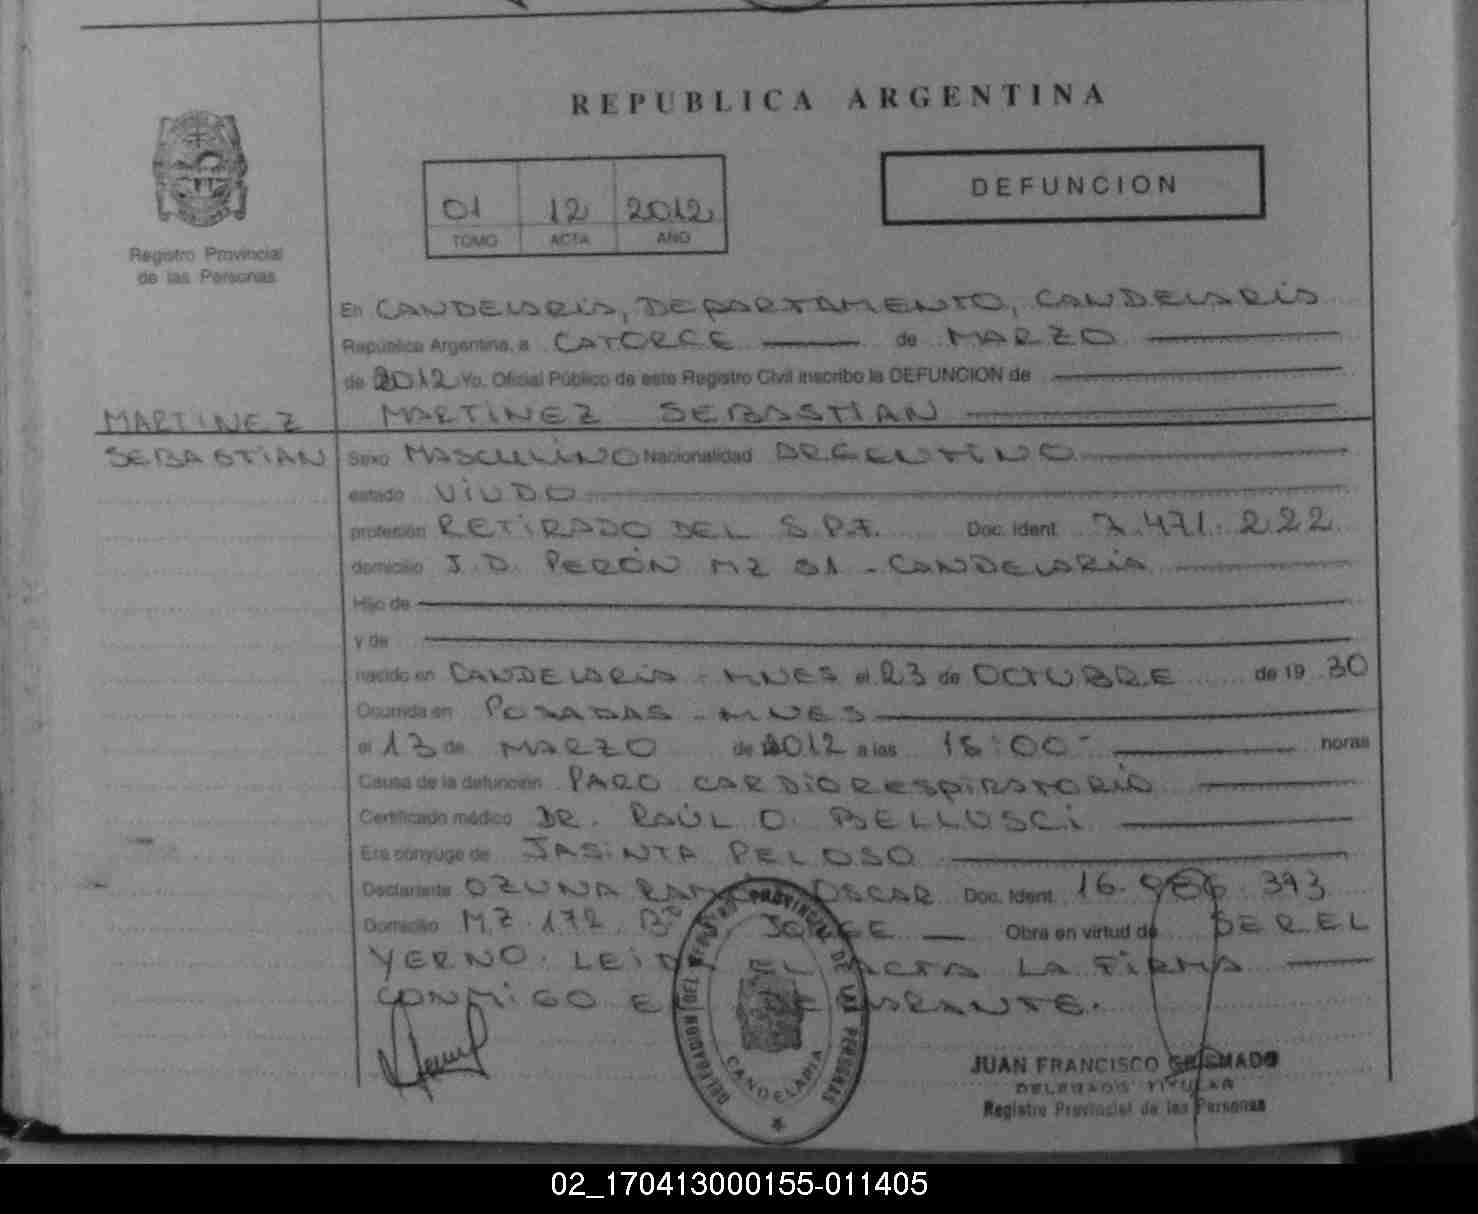 REPUBLICA ARGENTINA
DEFUNCION
01 12 2012
TOMO ACTA AÑO
Registro Provincial
de las Personas
En CANDELARIA, DEPARTAMENTO, CANDELARIA
República Argentina, a CATORCE de MARZO
de 2012 Yo. Oficial Público de este Registro Civil inscribo la DEFUNCION de
MARTINEZ SEBASTIAN
MARTINEZ
SEBASTIAN
Sexo MASCULINO Nacionalidad ARGENTINO
estado VIUDO
profesión RETIRADO DEL S.P.F. Doc. Ident. 7.471.222
domicilio J.D. PERÓN MZ 31 - CANDELARIA
Hijo de
y de
nacido en CANDELARIA - MNES el 23 de OCTUBRE de 19 30
Ocurrida en POSADAS - MNES
el 13 de MARZO de 2012 a las 00 horas
Causa de la defunción PARO CARDIORESPIRATORIO
Certificado médico DR. RAÚL O. BELLUSCI
Era cónyuge de JASINTA PELOSO
Declarante OZUNA RAMÓN OSCAR Doc. Ident. 16. 393
Domicilio MZ. 172 Bº JORGE Obra en virtud de SER EL
YERNO. LEIDA EL ACTA LA FIRMA
CONMIGO EL DECLARANTE.
DELEGACION DEL REGISTRO PROVINCIAL DE LAS PERSONAS
CANDELARIA
JUAN FRANCISCO
DELEGADO TITULAR
Registro Provincial de las Personas
02_170413000155-011405